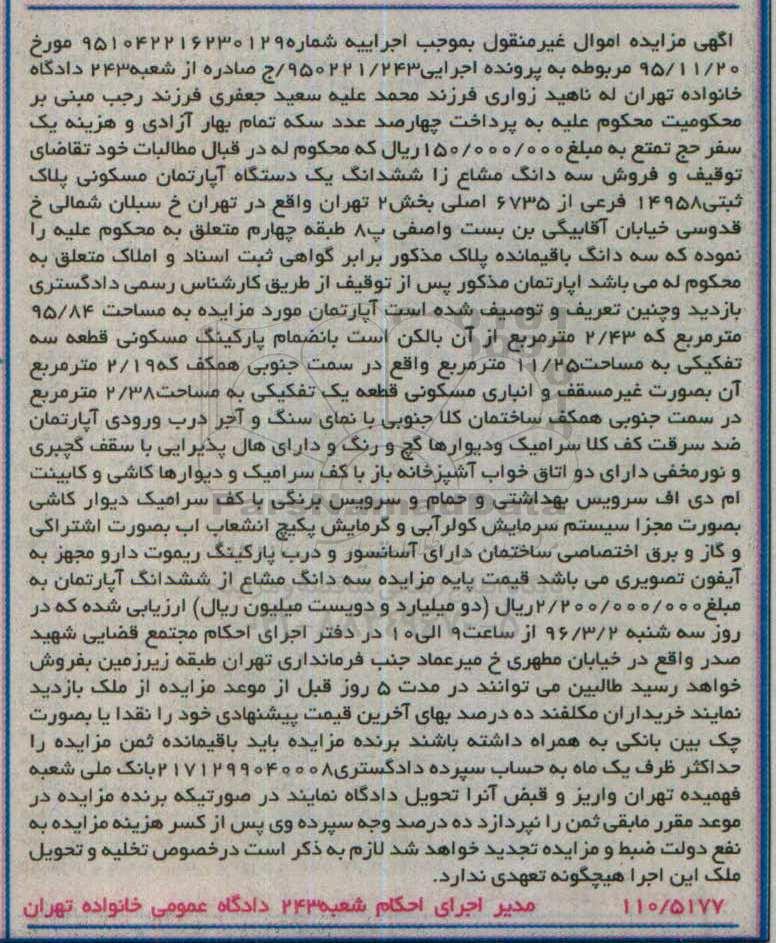 آگهی مزایده اموال غیرمنقول بموجب اجراییه شماره۹۵۱۰۴۲۲۱۶۲۳۰۱۲۹ مورخ
۹۵/۱۱/۲۰ مربوطه به پرونده اجرایی۹۵۰۲۲۱/۲۴۳/ج صادره از شعبه۲۴۳ دادگاه
خانواده تهران له ناهید زواری فرزند محمد علیه سعید جعفری فرزند رجب مبنی بر
محکومیت محکوم علیه به پرداخت چهارصد عدد سکه تمام بهار آزادی و هزینه یک
سفر حج تمتع به مبلغ۱۵۰/۰۰۰/۰۰۰ریال که محکوم له در قبال مطالبات خود تقاضای
توقیف و فروش سه دانگ مشاع زا ششدانگ یک دستگاه آپارتمان مسکونی پلاک
ثبتی۱۴۹۵۸ فرعی از ۶۷۳۵ اصلی بخش۲ تهران واقع در تهران خ سبلان شمالی خ
قدوسی خیابان آقابیگی بن بست واصفی پ۸ طبقه چهارم متعلق به محکوم علیه را
نموده که سه دانگ باقیمانده پلاک مذکور برابر گواهی ثبت اسناد و املاک متعلق به
محکوم له می باشد اپارتمان مذکور پس از توقیف از طریق کارشناس رسمی دادگستری
بازدید وچنین تعریف و توصیف شده است آپارتمان مورد مزایده به مساحت ۹۵/۸۴
مترمربع که ۲/۴۳ مترمربع از آن بالکن است بانضمام پارکینگ مسکونی قطعه سه
تفکیکی به مساحت۱۱/۲۵ مترمربع واقع در سمت جنوبی همکف که۲/۱۹ مترمربع
آن بصورت غیرمسقف و انباری مسکونی قطعه یک تفکیکی به مساحت۲/۳۸ مترمربع
در سمت جنوبی همکف ساختمان کلا جنوبی با نمای سنگ و آجر درب ورودی آپارتمان
ضد سرقت کف کلا سرامیک ودیوارها گچ و رنگ و دارای هال پذیرایی با سقف گچبری
و نورمخفی دارای دو اتاق خواب آشپزخانه باز با کف سرامیک و دیوارها کاشی و کابینت
ام دی اف سرویس بهداشتی و حمام و سرویس برنگی با کف سرامیک دیوار کاشی
بصورت مجزا سیستم سرمایش کولرآبی و گرمایش پکیچ انشعاب اب بصورت اشتراکی
و گاز و برق اختصاصی ساختمان دارای آسانسور و درب پارکینگ ریموت دارو مجهز به
آیفون تصویری می باشد قیمت پایه مزایده سه دانگ مشاع از ششدانگ آپارتمان به
مبلغ۲/۲۰۰/۰۰۰/۰۰۰ریال (دو میلیارد و دویست میلیون ریال) ارزیابی شده که در
روز سه شنبه ۹۶/۳/۲ از ساعت۹ الی۱۰ در دفتر اجرای احکام مجتمع قضایی شهید
صدر واقع در خیابان مطهری خ میرعماد جنب فرمانداری تهران طبقه زیرزمین بفروش
خواهد رسید طالبین می توانند در مدت ۵ روز قبل از موعد مزایده از ملک بازدید
نمایند خریداران مکلفند ده درصد بهای آخرین قیمت پیشنهادی خود را نقدا یا بصورت
چک بین بانکی به همراه داشته باشند برنده مزایده باید باقیمانده ثمن مزایده را
حداکثر ظرف یک ماه به حساب سپرده دادگستری۲۱۷۱۲۹۹۰۴۰۰۰۸بانک ملی شعبه
فهمیده تهران واریز و قبض آنرا تحویل دادگاه نمایند در صورتیکه برنده مزایده در
موعد مقرر مابقی ثمن را نپردازد ده درصد وجه سپرده وی پس از کسر هزینه مزایده به
نفع دولت ضبط و مزایده تجدید خواهد شد لازم به ذکر است درخصوص تخلیه و تحویل
ملک این اجرا هیچگونه تعهدی ندارد.
۱۱۰/۵۱۷۷ مدیر اجرای احکام شعبه۲۴۳ دادگاه عمومی خانواده تهران
ParsNamadData